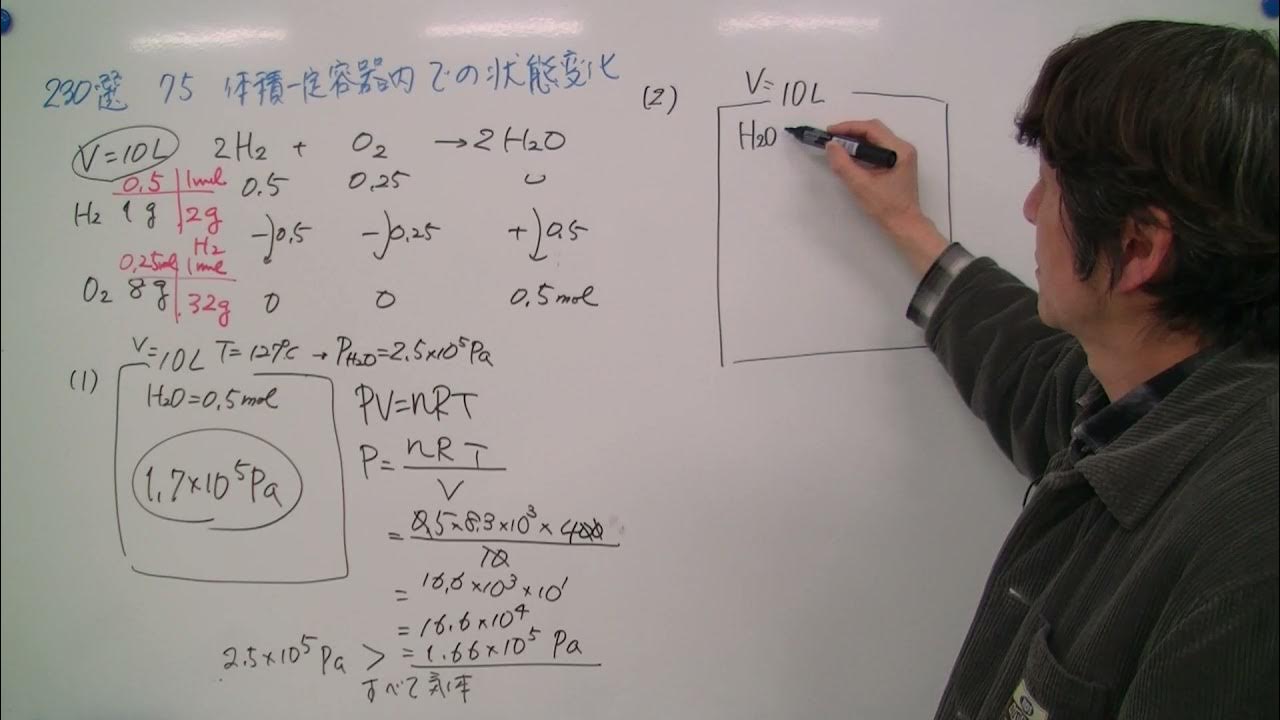 230選 75 体積一定容器内での状態変化
V=10L 2H₂ + O₂ → 2H₂O
0.5 | 1mol 0.5 0.25 0
H₂ 1g | 2g -0.5 -0.25 +0.5
H₂
0.25mol | 1mol
O₂ 8g | 32g 0 0 0.5mol
(1) V=10L T=127℃ → PH₂O=2.5×10⁵Pa
H₂O=0.5mol
1.7×10⁵Pa
PV=nRT
P=nRT/V
=0.5×8.3×10³×400/10
=16.6×10³×10¹
=16.6×10⁴
2.5×10⁵Pa > =1.66×10⁵Pa
すべて気体
(2) V=10L
H₂O